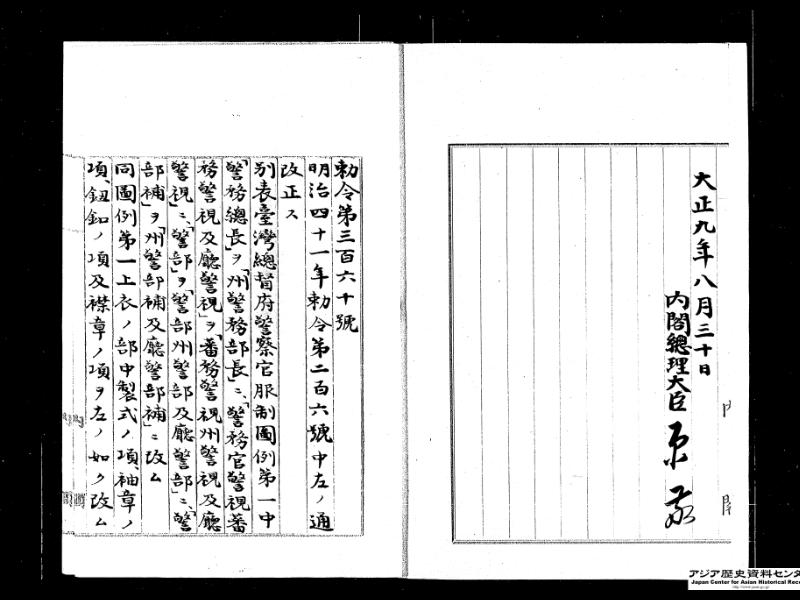 大正九年八月三十日
内閣總理大臣 原敬
勅令第三百六十號
明治四十一年勅令第二百六號中左ノ通
改正ス
別表臺灣總督府警察官服制圖例第一中
「警務總長」ヲ「州警務部長」ニ、「警務官警視蕃
務警視及廳警視」ヲ「蕃務警視州警視及廳
警視」ニ、「警部」ヲ「警部州警部及廳警部」ニ、「警
部補」ヲ「州警部補及廳警部補」ニ改ム
同圖例第一上衣ノ部中製式ノ項、袖章ノ
項、鈕釦ノ項及襟章ノ項ヲ左ノ如ク改ム
内閣
アジア歴史資料センター
Japan Center for Asian Historical Rec